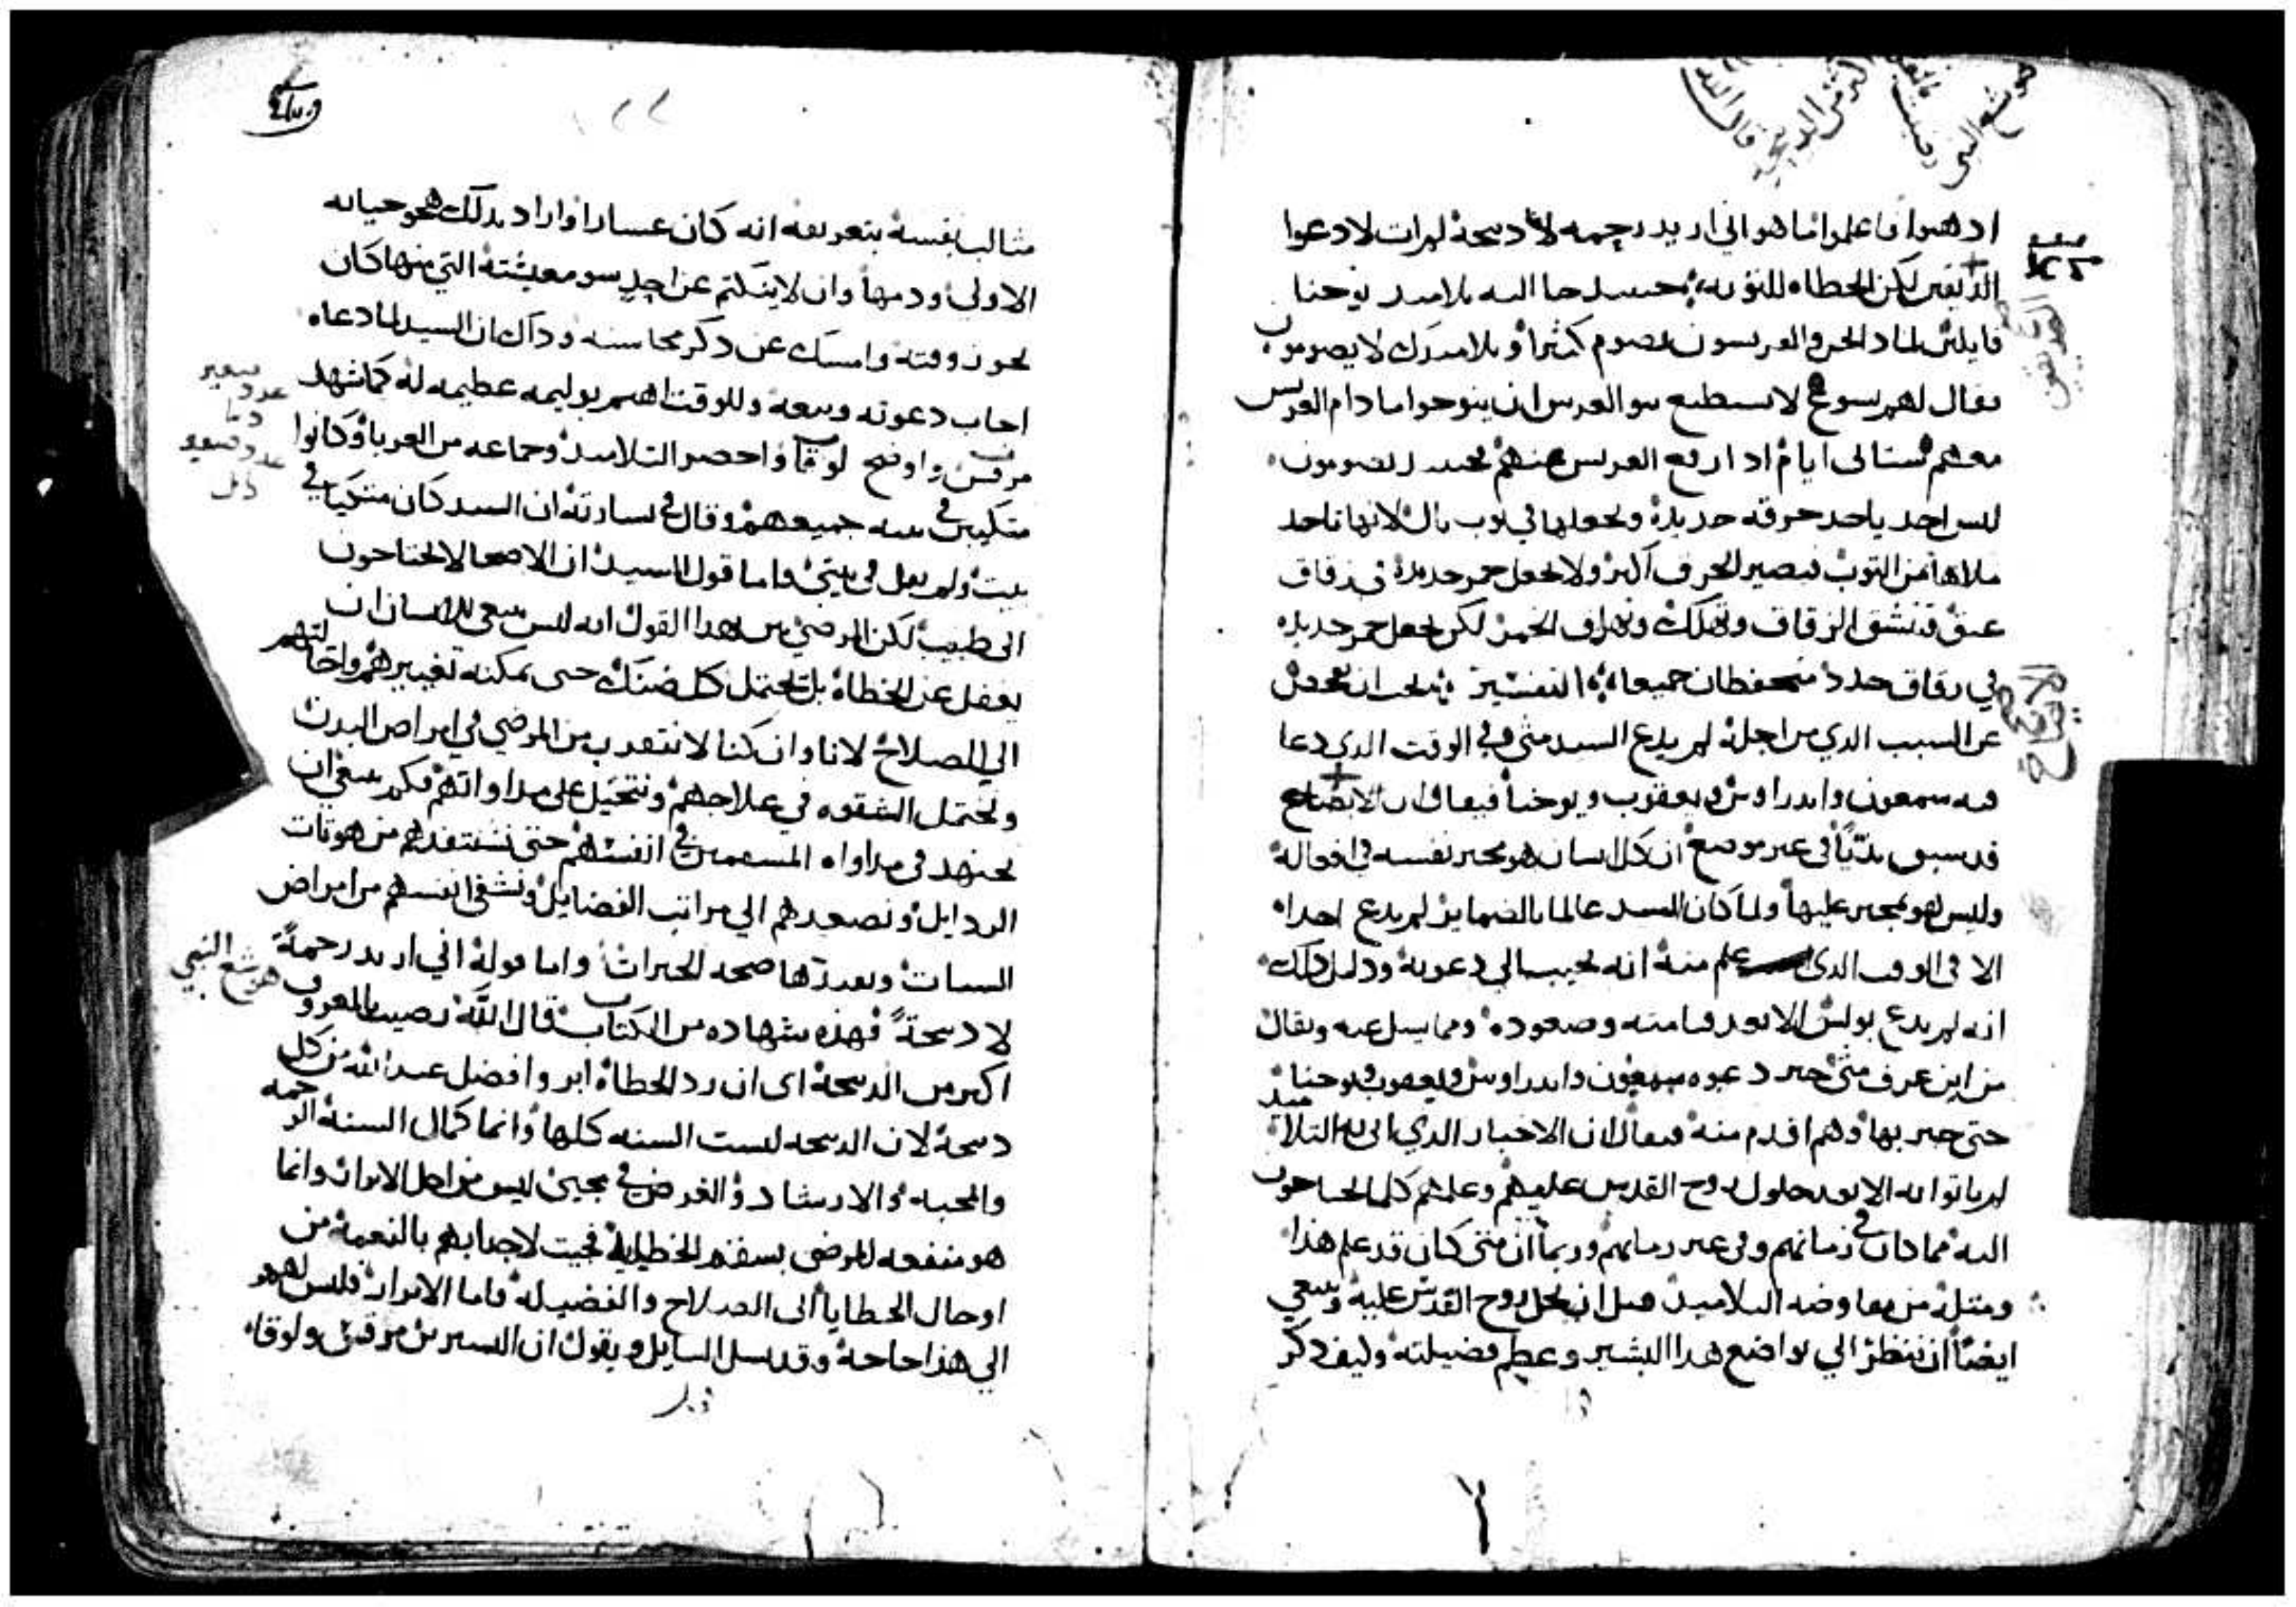 اذهبوا فاعلموا ما هو اني اريد رحمه لا دبيحة لم ات لادعوا
الصديقين لكن الخطاه للتوبه حينيد جا اليه تلاميد يوحنا
قايلين لماذا نحن والفريسيون نصوم كثيرا وتلاميدك لا يصومون
فقال لهم يسوع لا يستطيع بنو العرس ان ينوحوا ما دام العريس
معهم ستاتي ايام ادا ارتفع العريس عنهم فحينيد يصومون
ليس احد ياخد خرقه جديدة ويجعلها في توب بال لانها تاخد
ملاها من التوب فيصير الخرق اكبر ولا يجعل خمر جديدة في زقاق
عتق فتنشق الزقاق وتهلك وتهراق الخمر لكن يجعل خمر جديده
في زقاق جدد فيتحفظان جميعا التفسير يجب ان نفحص
عن السبب الدي من اجله لم يدع السيد متى في الوقت الدي دعا
فيه سمعون واندراوس ويعقوب ويوحنا فيقال ان الايضاح
قد سبق منا في غير موضع ان كل انسان هو مخير نفسه في افعاله
وليس هو مجبر عليها ولما كان السيد عالما بالضماير لم يدع احدا
الا في الوقت الدي علم منه انه يجيب الي دعوته ودليل دلك
انه لم يدع بولس الا بعد قيامته وصعوده ومما يسل عنه ويقال
من اين عرف متى خبر دعوه سمعون واندراوس ويعقوب ويوحنا
حتى خبر بها وهم اقدم منه فيقال ان الاخبار الدي اتى به التلاميد
لم ياتوا به الا بعد حلول روح القدس عليهم وعلمهم كلما يحتاجون
اليه مما كان في زمانهم وفي غير زمانهم وربما ان متى كان قد علم هذا
ومثله من مفاوضه التلاميد قبل ان يحل روح القدس عليه وينبغي
ايضا ان ننظر الي تواضع هدا البشير وعظم فضيلته وكيف دكر
مثالب نفسه بتعريفه انه كان عشارا واراد بدلك هجو حياته
الاولى ودمها وان لا ينكتم عن احد سو معيشته التي منها كان
يحوز قوته وامسك عن دكر محاسنه وداك ان السيد لما دعاه
اجاب دعوته وتبعه وللوقت اهتم بوليمه عظيمه له كما شهد
مرقس واوضح لوقا واحضر التلاميد وجماعه من الغربا وكانوا
متكيين في بيته جميعهم وقال في بشارته ان السيد كان متكيا في
بيت ولم يقل في بيتي واما قول السيد ان الاصحا لا يحتاجون
الى طبيب لكن المرضي بين بهدا القول انه ليس ينبغي للانسان ان
يغفل عن الخطاة بل يحتمل كل ضنك حتى يمكنه تغييرهم واحالتهم
الي الصلاح لانا وان كنا لا نتقدر من المرضي في امراض البدن
ونحتمل الشقوه في علاجهم ونتحيل على مداواتهم فكم ينبغي ان
نجتهد في مداواه المسقمين في انفسهم حتى نستنقدهم من هوتات
الردايل ونصعدهم الي مراتب الفضايل ونشفي انفسهم من امراض
السيات صحه الخيرات واما قوله اني اريد رحمة
لا دبيحة فهذه شهاده من الكتاب قال الله رضيت بالمعروف
اكبر من الدبيحة اى ان رد الخطاة ابر وافضل عند الله من كل
دبيحة لان الدبيحه ليست السنه كلها وانما كمال السنة الرحمه
والمحبه والارشاد والغرض في مجيي ليس من اجل الابرار وانما
هو منفعه للمرضى بسقم الخطيية فجيت لاجتدابهم بالنعمة من
اوحال الخطايا الى الصلاح والفضيله فاما الابرار فليس لهم
الي هذا حاجة وقد يسل السايل ويقول ان البشيرين مرقس ولوقا
هوشع النبي